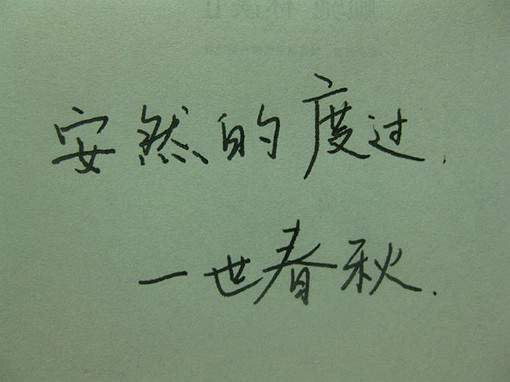 安然的度过.
一世春秋.